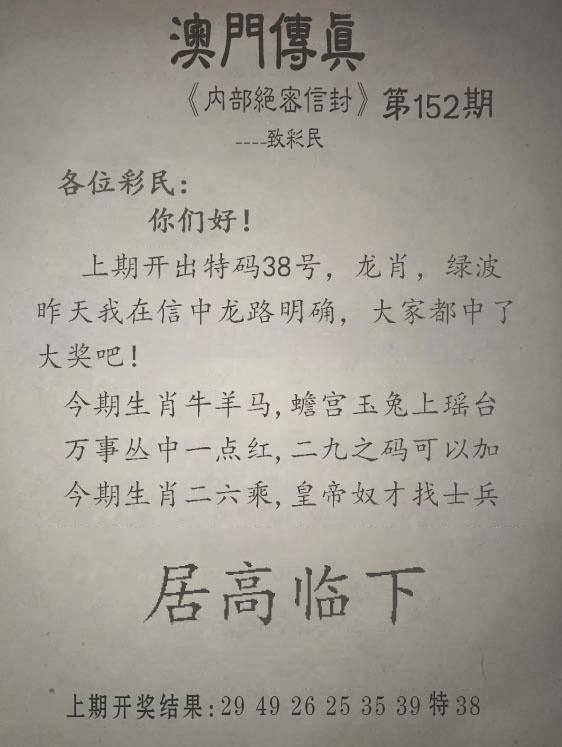 澳門傳眞
《内部絕密信封》第152期
----致彩民
各位彩民：
你们好！
上期开出特码38号，龙肖，绿波
昨天我在信中龙路明确，大家都中了
大奖吧！
今期生肖牛羊马,蟾宫玉兔上瑶台
万事丛中一点红,二九之码可以加
今期生肖二六乘,皇帝奴才找士兵
居高临下
上期开奖结果:29 49 26 25 35 39 特 38